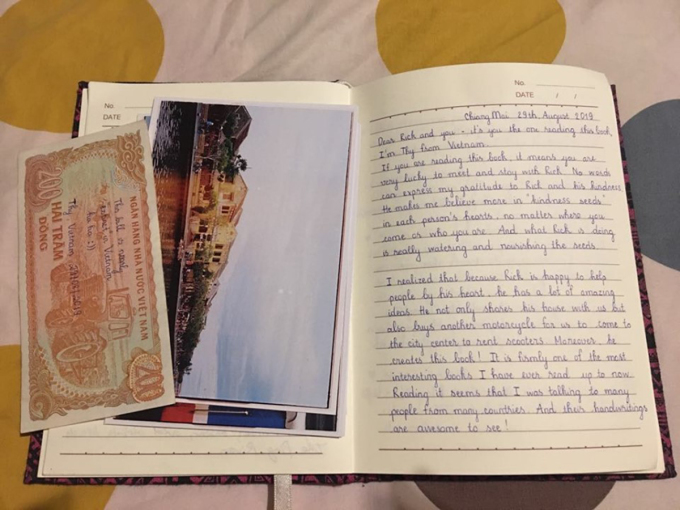 No.
DATE
NGÂN HÀNG NHÀ NƯỚC VIỆT NAM
This bill is rarely
in Vietnam
ha ha :))
200
HAI TRĂM
ĐỒNG
Thy, Vietnam
200
No.
DATE / /
Chiang Mai 29th August 2019
Dear Rick and you - it's you the one reading this book,
I'm Thy from Vietnam
If you are reading this book, it means you are
very lucky to meet and stay with Rick. No words
can express my gratitude to Rick and his kindness.
He makes me believe more in "kindness seeds"
in each person's hearts, no matter where you
come or who you are. And what Rick is doing
is really watering and nourishing the seeds.
I realized that because Rick is happy to help
people by his heart, he has a lot of amazing
ideas. He not only shares his house with us but
also buys another motorcycle for us to come to
the city center to rent scooters. Moreover, he
creates this book! It is firmly one of the most
interesting books I have ever read up to now.
Reading it seems that I was talking to many
people from many countries. And their handwritings
are awesome to see!